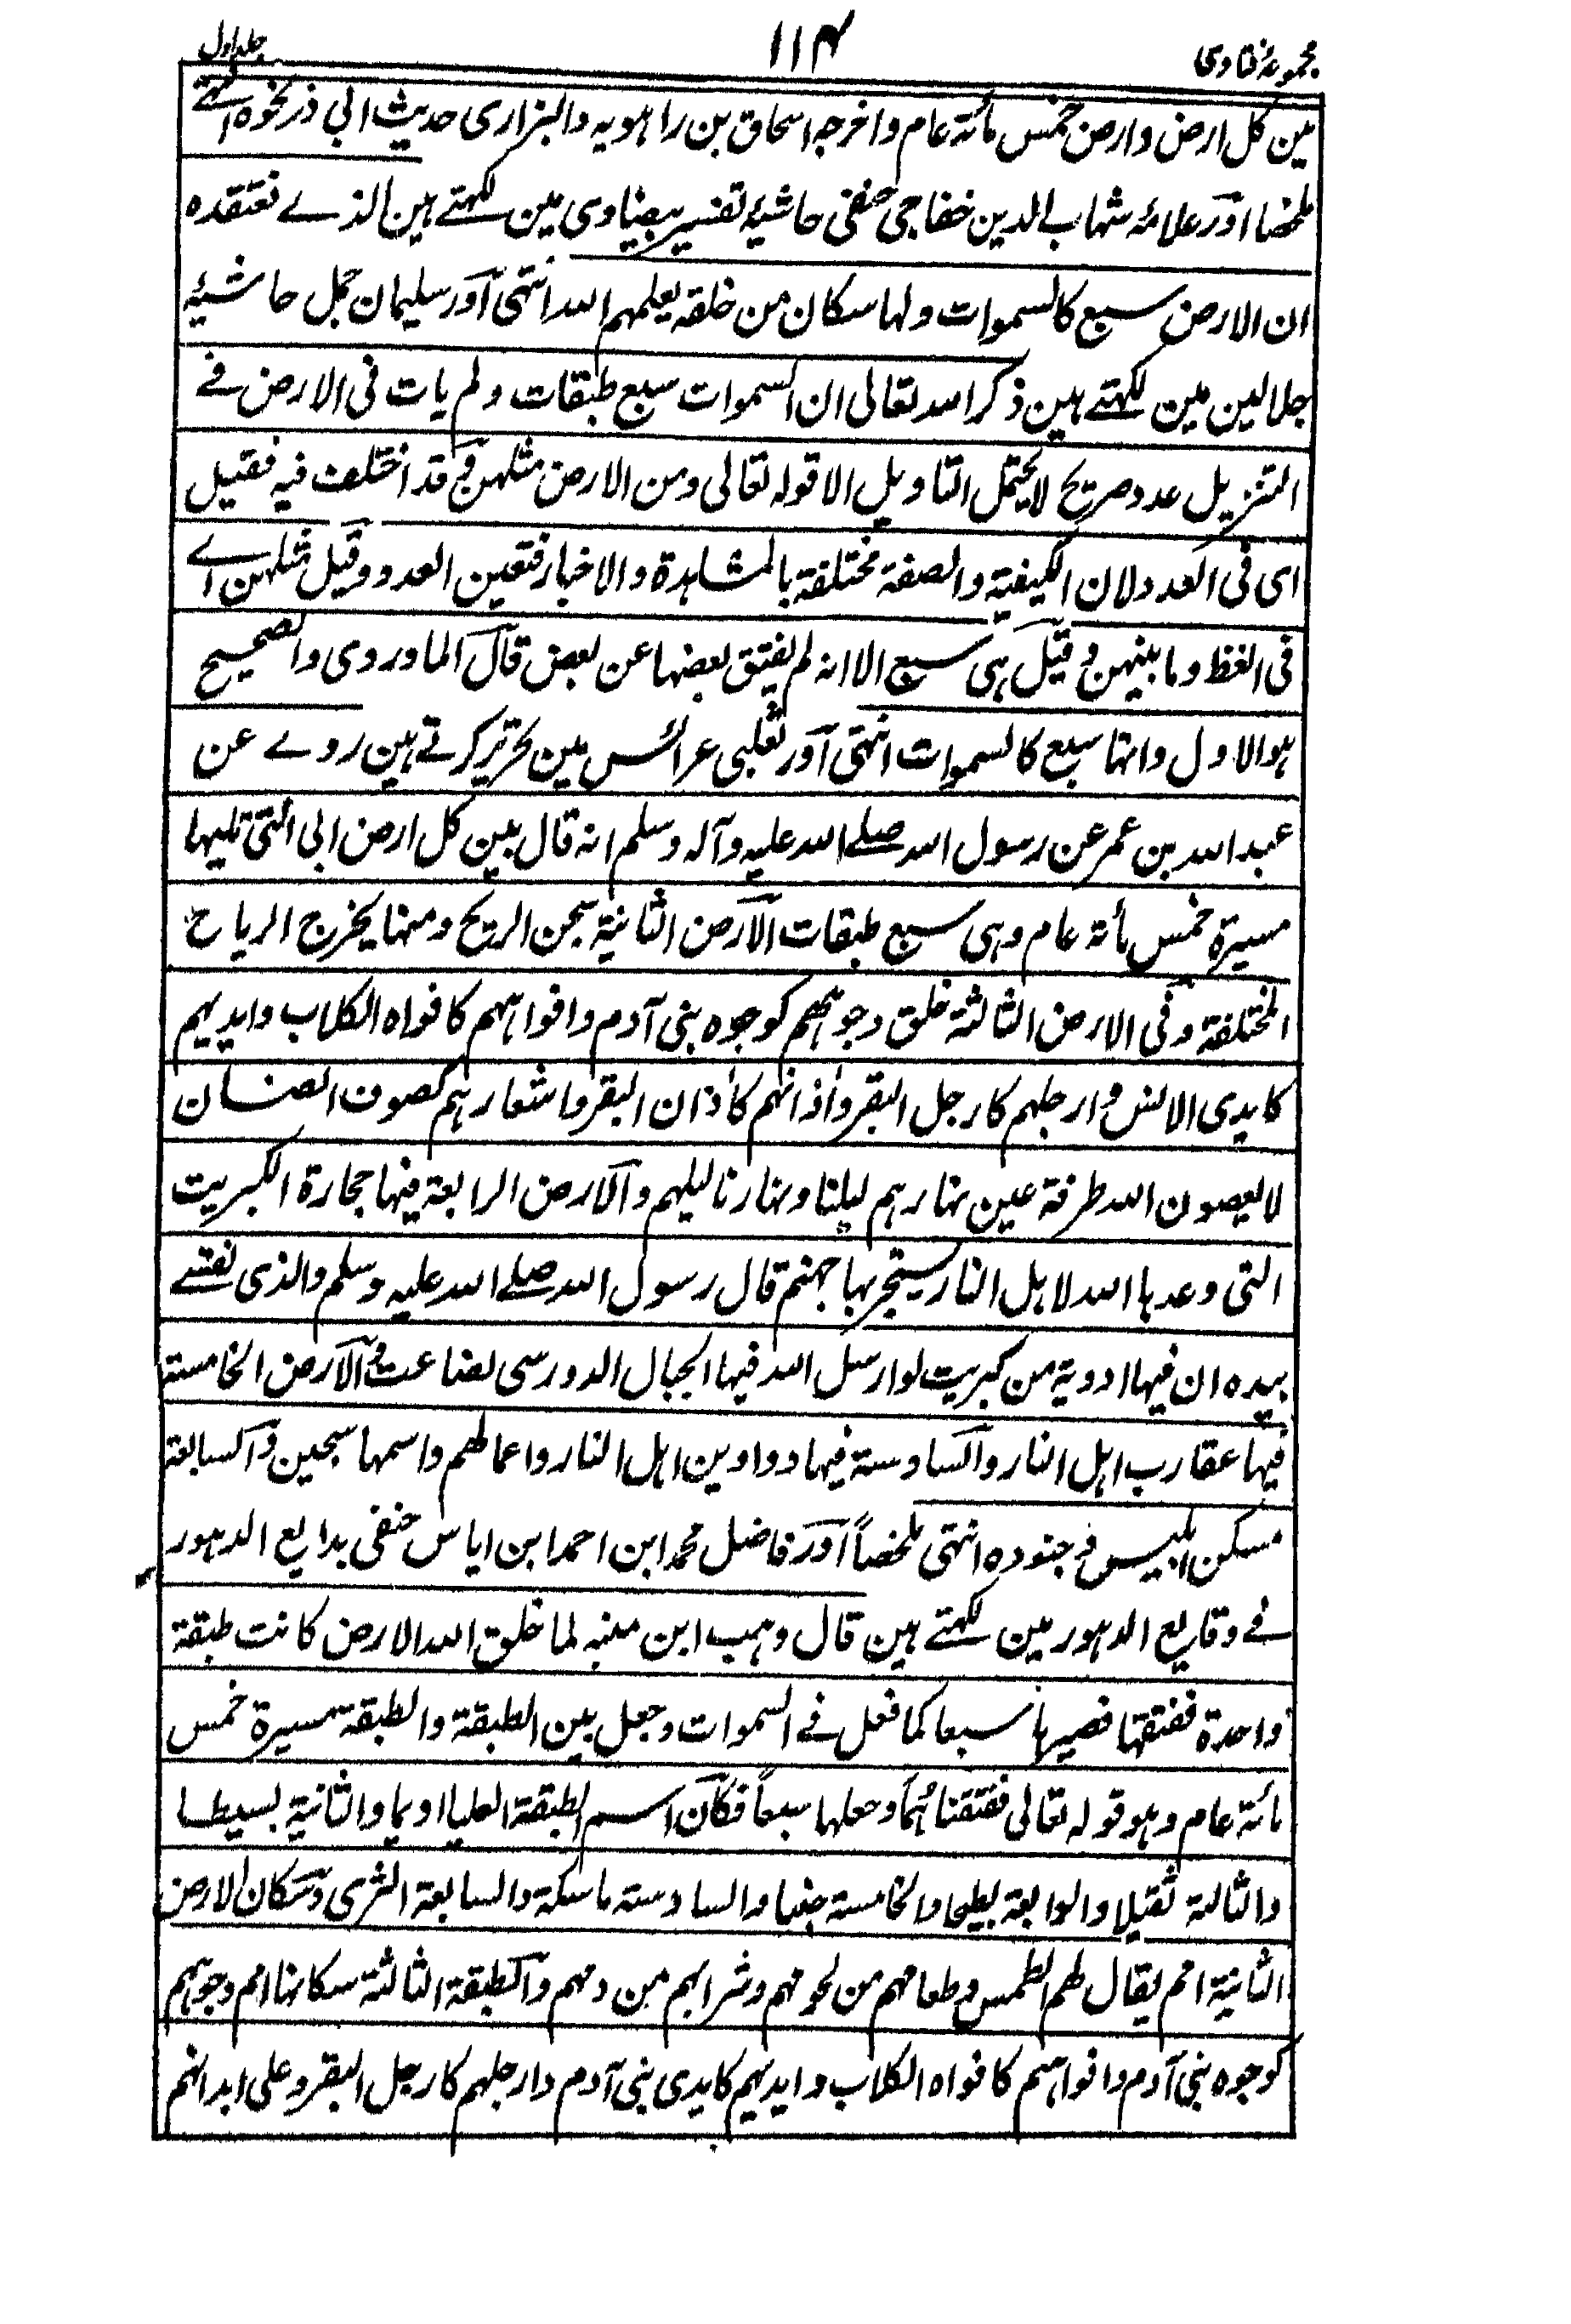 مجموعہ فتاوی ۱۱۴ جلد اول
بین کل ارض وارض خمس مأتہ عام واخرجہ اسحاق بن راہویہ والبزاری حدیث ابی ذر نحوہ انتہے
ملخصا اور علامہ شہاب الدین خفاجی حنفی حاشیۂ تفسیر بیضاوی مین لکھتے ہین الذے نعتقدہ
ان الارض سبع کالسموات ولہا سکان من خلقہ یعلمہم اللہ انتہی اور سلیمان جمل حاشیۂ
جلالین مین لکھتے ہین ذکر اللہ تعالی ان السموات سبع طبقات ولم یات فی الارض فے
التنزیل عدد صریح لا یحتمل التاویل الا قولہ تعالی ومن الارض مثلہن وقد اختلف فیہ فقیل
ای فی العدد لان الکیفیۃ والصفۃ مختلفۃ بالمشاہدۃ والاخبار فتعین العدد وقیل مثلہن اے
فی الغظ وما بینہن وقیل ہی سبع الا انہ لم یفتق بعضہا عن بعض قال الماوردی والصحیح
ہو الاول وانہا سبع کالسموات انتہی اور ثعلبی عرائس مین تحریر کرتے ہین روے عن
عبد اللہ بن عمر عن رسول اللہ صلے اللہ علیہ وآلہ وسلم انہ قال بین کل ارض الی التی تلیہا
مسیرۃ خمس مأتہ عام وہی سبع طبقات الارض الثانیۃ سجن الریح ومنہا یخرج الریاح
المختلفۃ وفی الارض الثالثۃ خلق وجوہہم کوجوہ بنی آدم وافواہہم کافواہ الکلاب وایدیہم
کایدی الانس وارجلہم کارجل البقر واذانہم کأذان البقر واشعارہم کصوف الضان
لا یعصون اللہ طرفۃ عین نہارہم لیلنا ونہارنا لیلہم والارض الرابعۃ فیہا حجارۃ الکبریت
التی وعدہا اللہ لاہل النار یستجر بہا جہنم قال رسول اللہ صلے اللہ علیہ وسلم والذی نفسے
بیدہ ان فیہا اودیۃ من کبریت لو ارسل اللہ فیہا الجبال الدورسی لضاعت والارض الخامسۃ
فیہا عقارب اہل النار والسادستہ فیہا دواوین اہل النار واعمالہم واسمہا سجین والسابعۃ
مسکن ابلیس وجنودہ انتہی ملخصاً اور فاضل محمد ابن احمد ابن ایاس حنفی بدایع الدہور
فے وقایع الدہور مین لکھتے ہین قال وہب ابن منبہ لما خلق اللہ الارض کانت طبقۃ
واحدۃ ففتقہا فصیرہا سبعا کما فعل فے السموات وجعل بین الطبقۃ والطبقۃ مسیرۃ خمس
مائۃ عام وہو قولہ تعالی ففتقناہُماَ وجعلہا سبعاً فکان اسم الطبقۃ العلیا ادیما والثانیۃ بسیطا
والثالثۃ ثقیلا والرابعۃ بطیحا والخامستہ والسادستہ ماسکۃ والسابعۃ الثری وسکان الارض
الثانیۃ امم یقال لہم الطمس وطعامہم من لحومہم وشرابہم من دمہم والطبقۃ الثالثۃ سکانہا امم وجوہہم
کوجوہ بنی آدم وافواہہم کافواہ الکلاب وایدیہم کایدی بنی آدم وارجلہم کارجل البقر وعلی ابدانہم